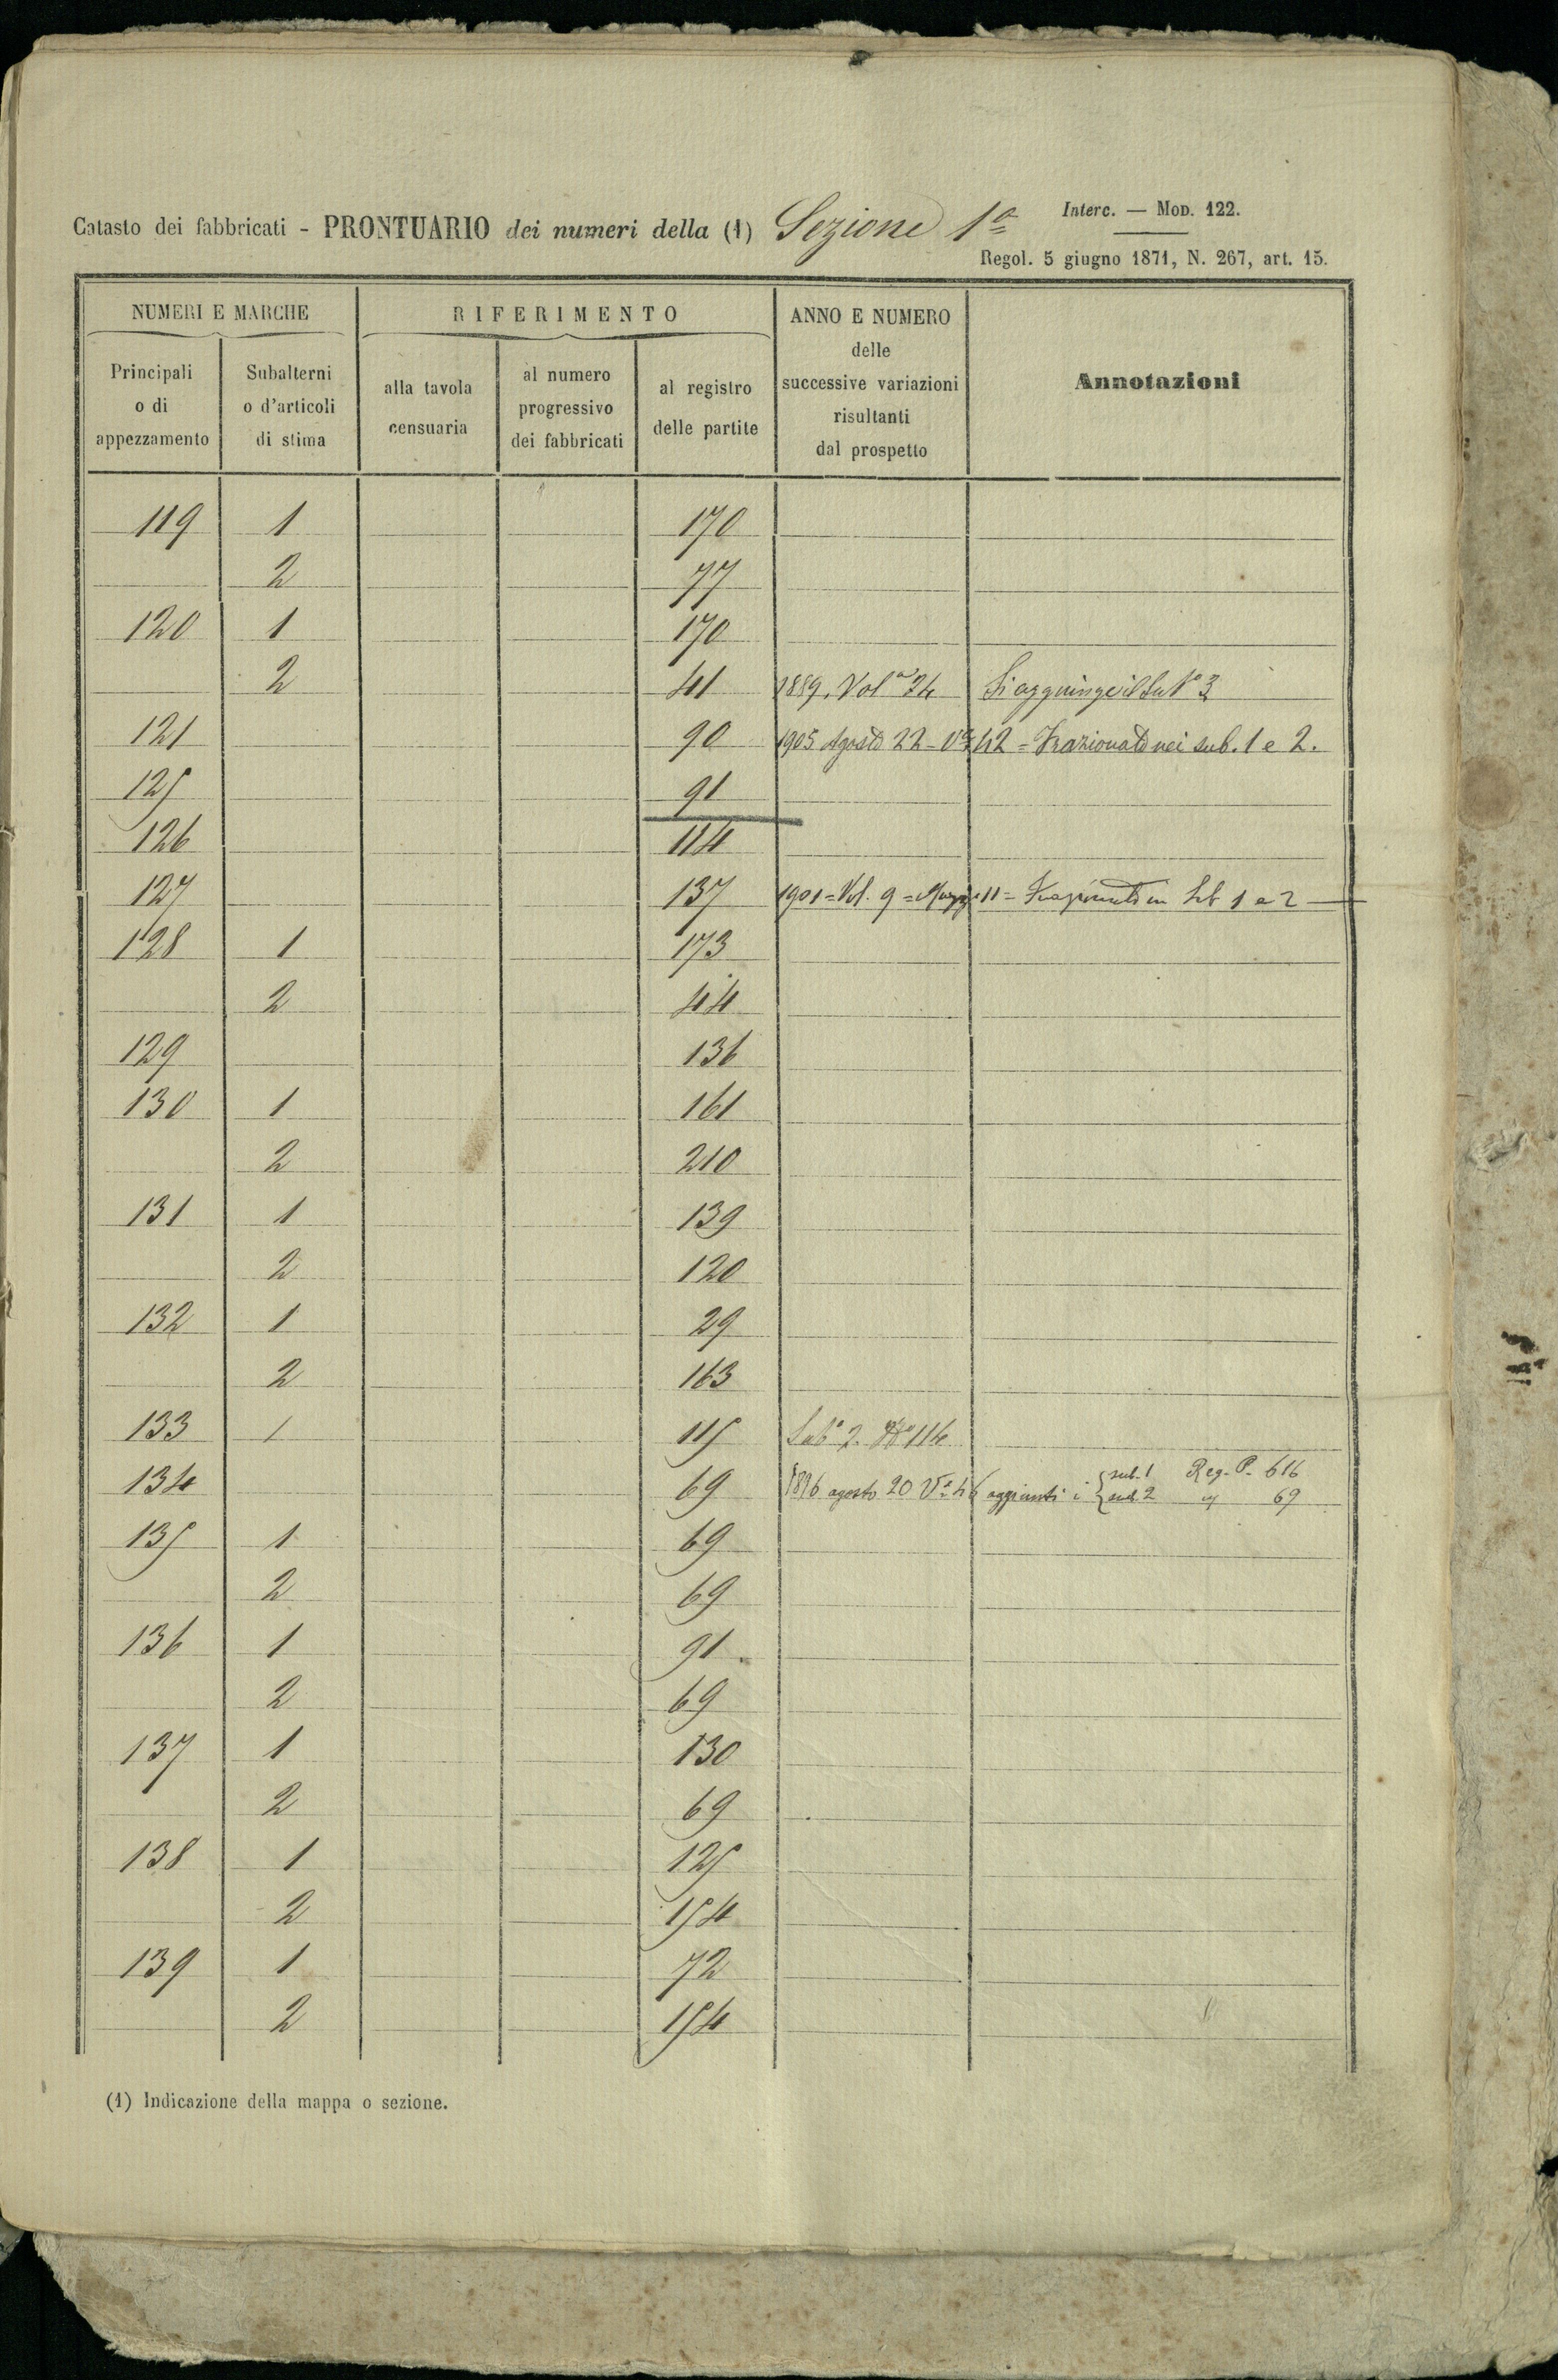 Catasto dei fabbricati - PRONTUARIO dei numeri della (1) Sezione 1ª
Interc. — Mod. 122.
Regol. 5 giugno 1871, N. 267, art. 15.
NUMERI E MARCHE
RIFERIMENTO
ANNO E NUMERO
delle
successive variazioni
risultanti
dal prospetto
Annotazioni
Principali
o di
appezzamento
Subalterni
o d'articoli
di stima
alla tavola
censuaria
al numero
progressivo
dei fabbricati
al registro
delle partite
119 1 170
2 77
120 1 170
2 41 1889. Vol 74 Si aggiunge il Sub 3
121 90 1905 Agosto 22 - Vª 42 = Frazionato nei sub. 1 e 2.
125 91
126 114
127 137 1901 = Vol. 9 = 11 = Frazionato in Sub 1 e 2
128 1 173
2 44
129 136
130 1 161
2 210
131 1 139
2 120
132 1 29
2 163
133 1 115 Sub 2. 114
134 69 1896 agosto 20 Vª 46 aggiunti i { sub. 1 Reg. P. 616
sub 2 " 69
135 1 69
2 69
136 1 91
2 69
137 1 130
2 69
138 1 125
2 154
139 1 72
2 154
(1) Indicazione della mappa o sezione.